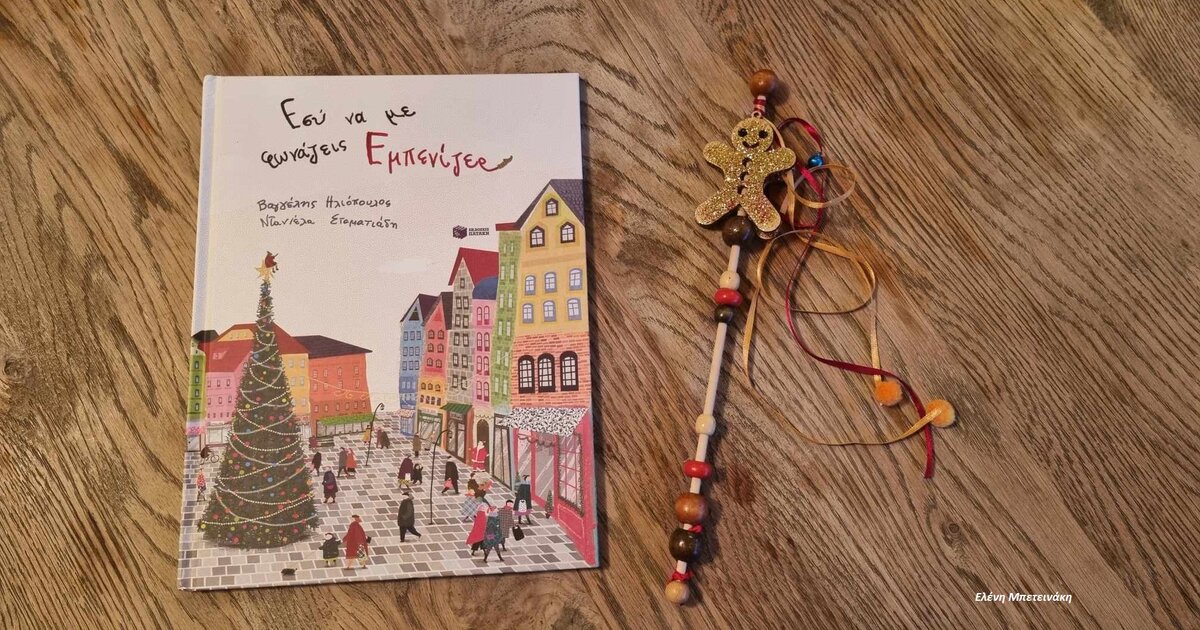 Εσύ να με
φωνάζεις Εμπενίζερ
Βαγγέλης Ηλιόπουλος
Ντανιέλα Σταματιάδη
ΕΚΔΟΣΕΙΣ
ΠΑΤΑΚΗ
Ελένη Μπετεινάκη